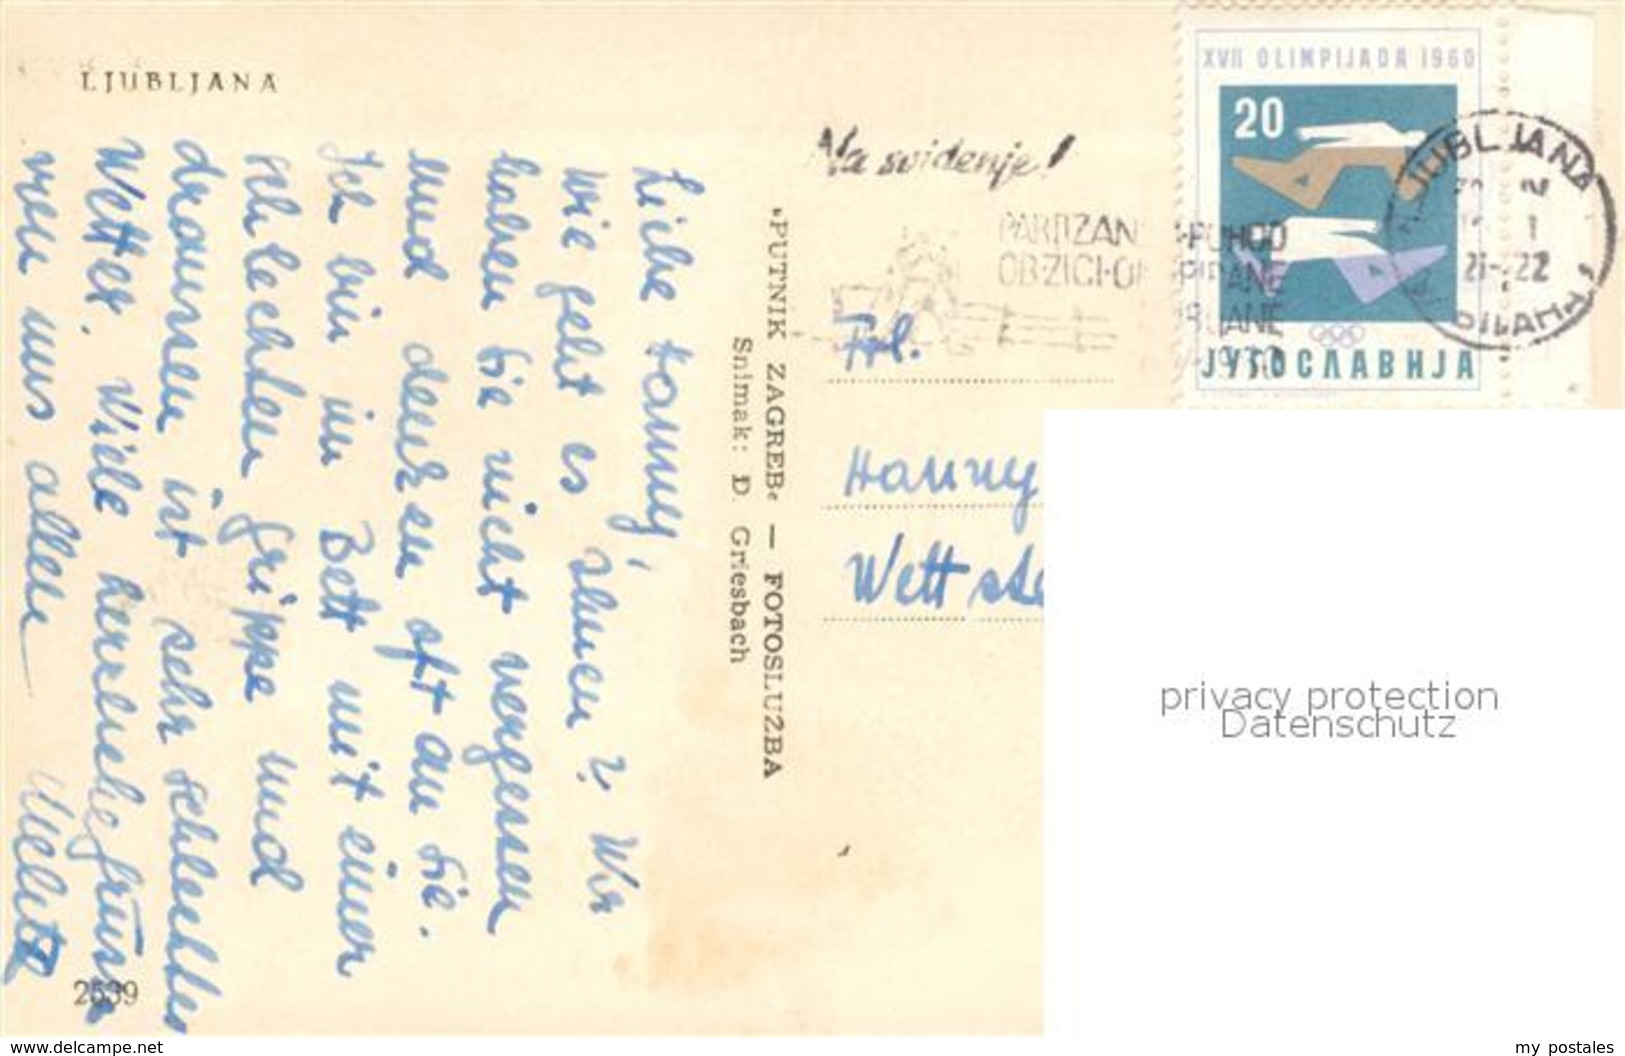 LJUBLJANA
Liebe Hanny,
wie geht es Ihnen? Wir
haben Sie nicht vergessen
und denken oft an Sie.
Ich bin im Bett mit einer
schlechten Grippe und
draussen ist sehr schlechtes
Wetter. Viele herzliche Grüsse
von uns allen
2539
"PUTNIK ZAGREB« — FOTOSLUŽBA
Snimak: Đ. Griesbach
Na svidenje!
XVII OLIMPIJADA 1960
20
ЈУГОСЛАВИЈА
LJUBLJANA
21-22
PARTIZAN
POHOD
OB ŽICI
Frl.
Hanny
Wettste
privacy protection
Datenschutz
www.delcampe.net
my_postales